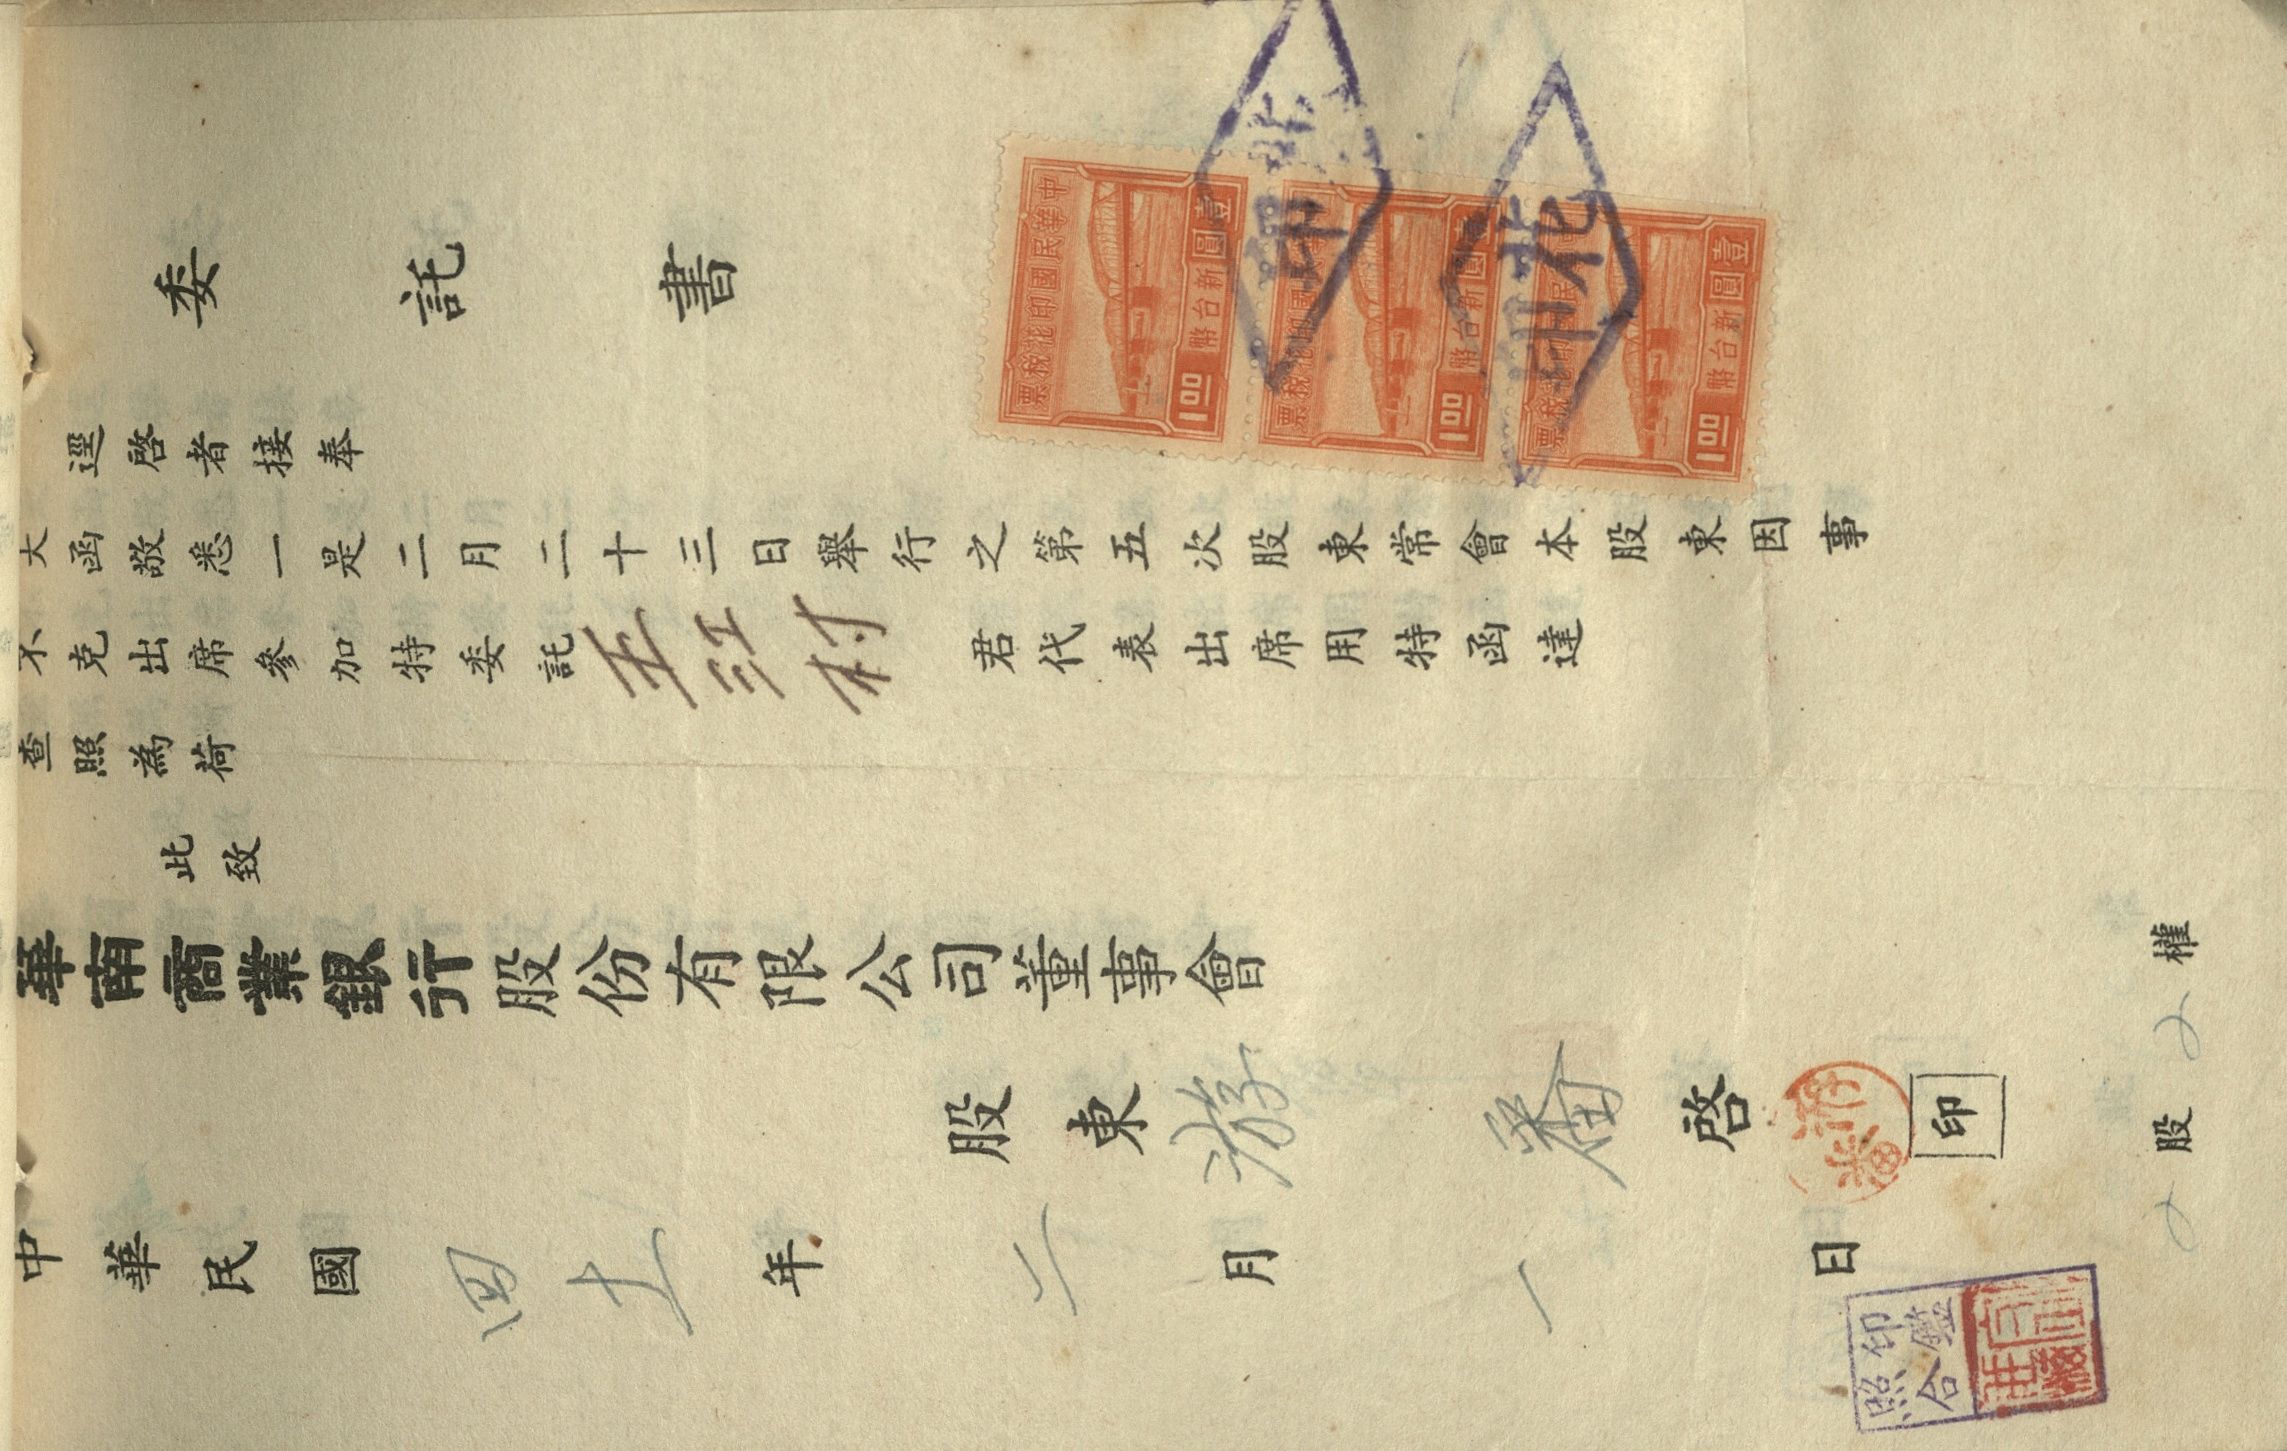 委託書
逕啓者接奉
大函敬悉一是二月二十三日舉行之第五次股東常會本股東因事
不克出席參加特委託 王江村 君代表出席用特函達
查照為荷
此致
華南商業銀行股份有限公司董事會
股東 游 番 啓 印
中華民國 四十一 年 二 月 一 日
股 權
中華民國印花稅票
壹圓 新台幣 1.00
壹圓 新台幣 1.00
壹圓 新台幣 1.00
印花
印鑑
照合